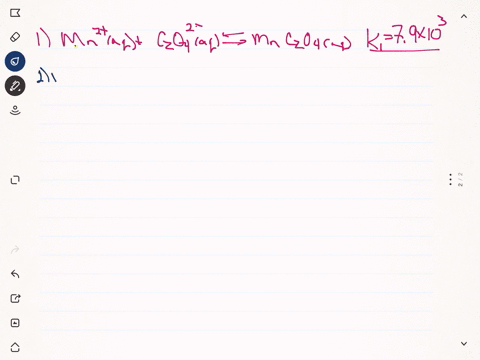 1) Mn²⁺(aq) + C₂O₄²⁻(aq) ⇌ MnC₂O₄(aq) K₁ = 7.9×10³
2)